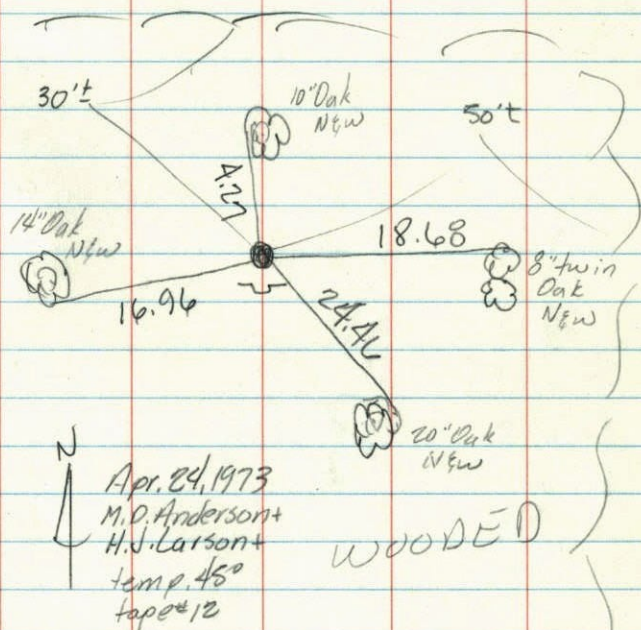 30'±
10" Oak
N&W
50'±
4.27
14" Oak
N&W
18.68
8" twin
Oak
N&W
16.96
24.46
20" Oak
N&W
N
Apr. 24, 1973
M.D. Anderson +
H.J. Larson +
temp. 45°
tape #12
WOODED